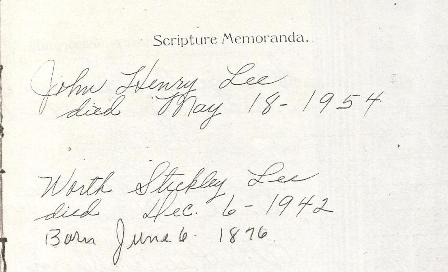 Scripture Memoranda.
John Henry Lee
died May 18-1954
Worth Stickley Lee
died Dec. 6-1942
Born June 6 1876